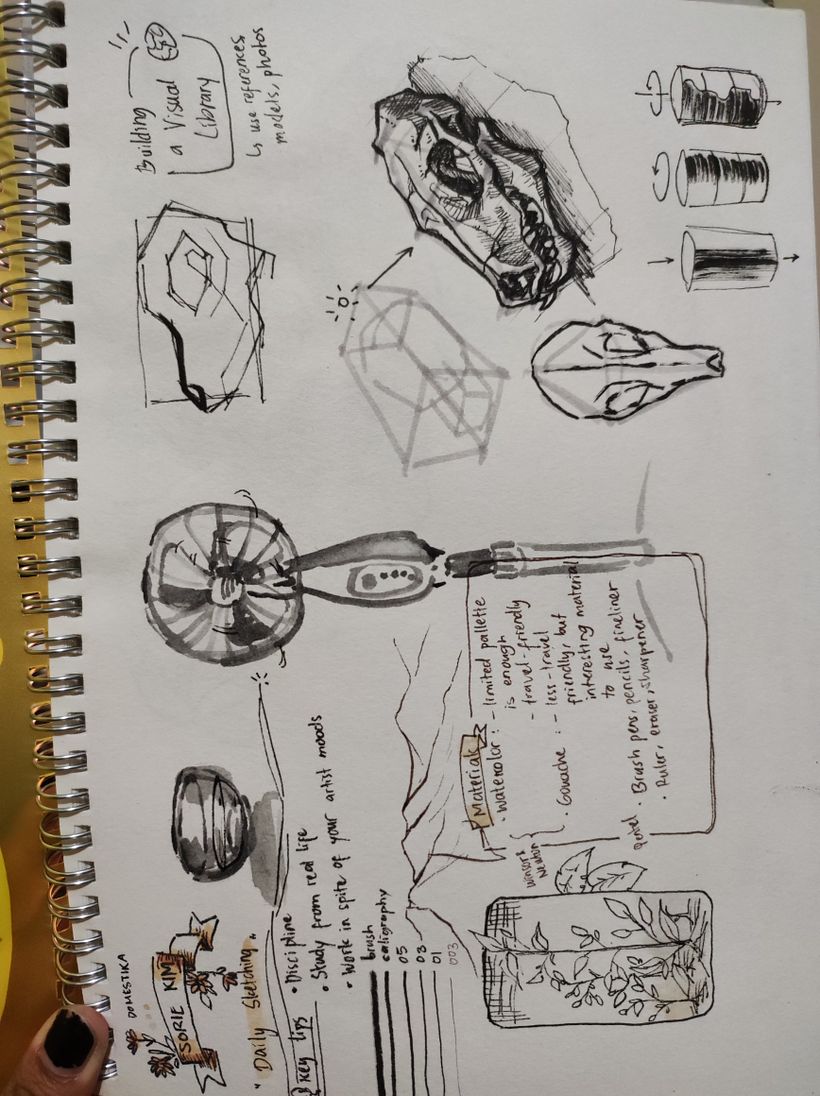 DOMESTIKA
SORIE KIM
"Daily Sketching"
KEY tips
• Discipline
• Study from real life
• Work in spite of your artist moods
brush
caligraphy
05
03
01
003
Building
a Visual
Library
↳ use references
models, photos
Material
• Watercolor : - limited pallette
is enough
- travel-friendly
• Gouache : - less-travel
friendly, but
interesting material
to use
• Brush pens, pencils, fineliner
• Ruler, eraser, sharpener
winsor &
Newton